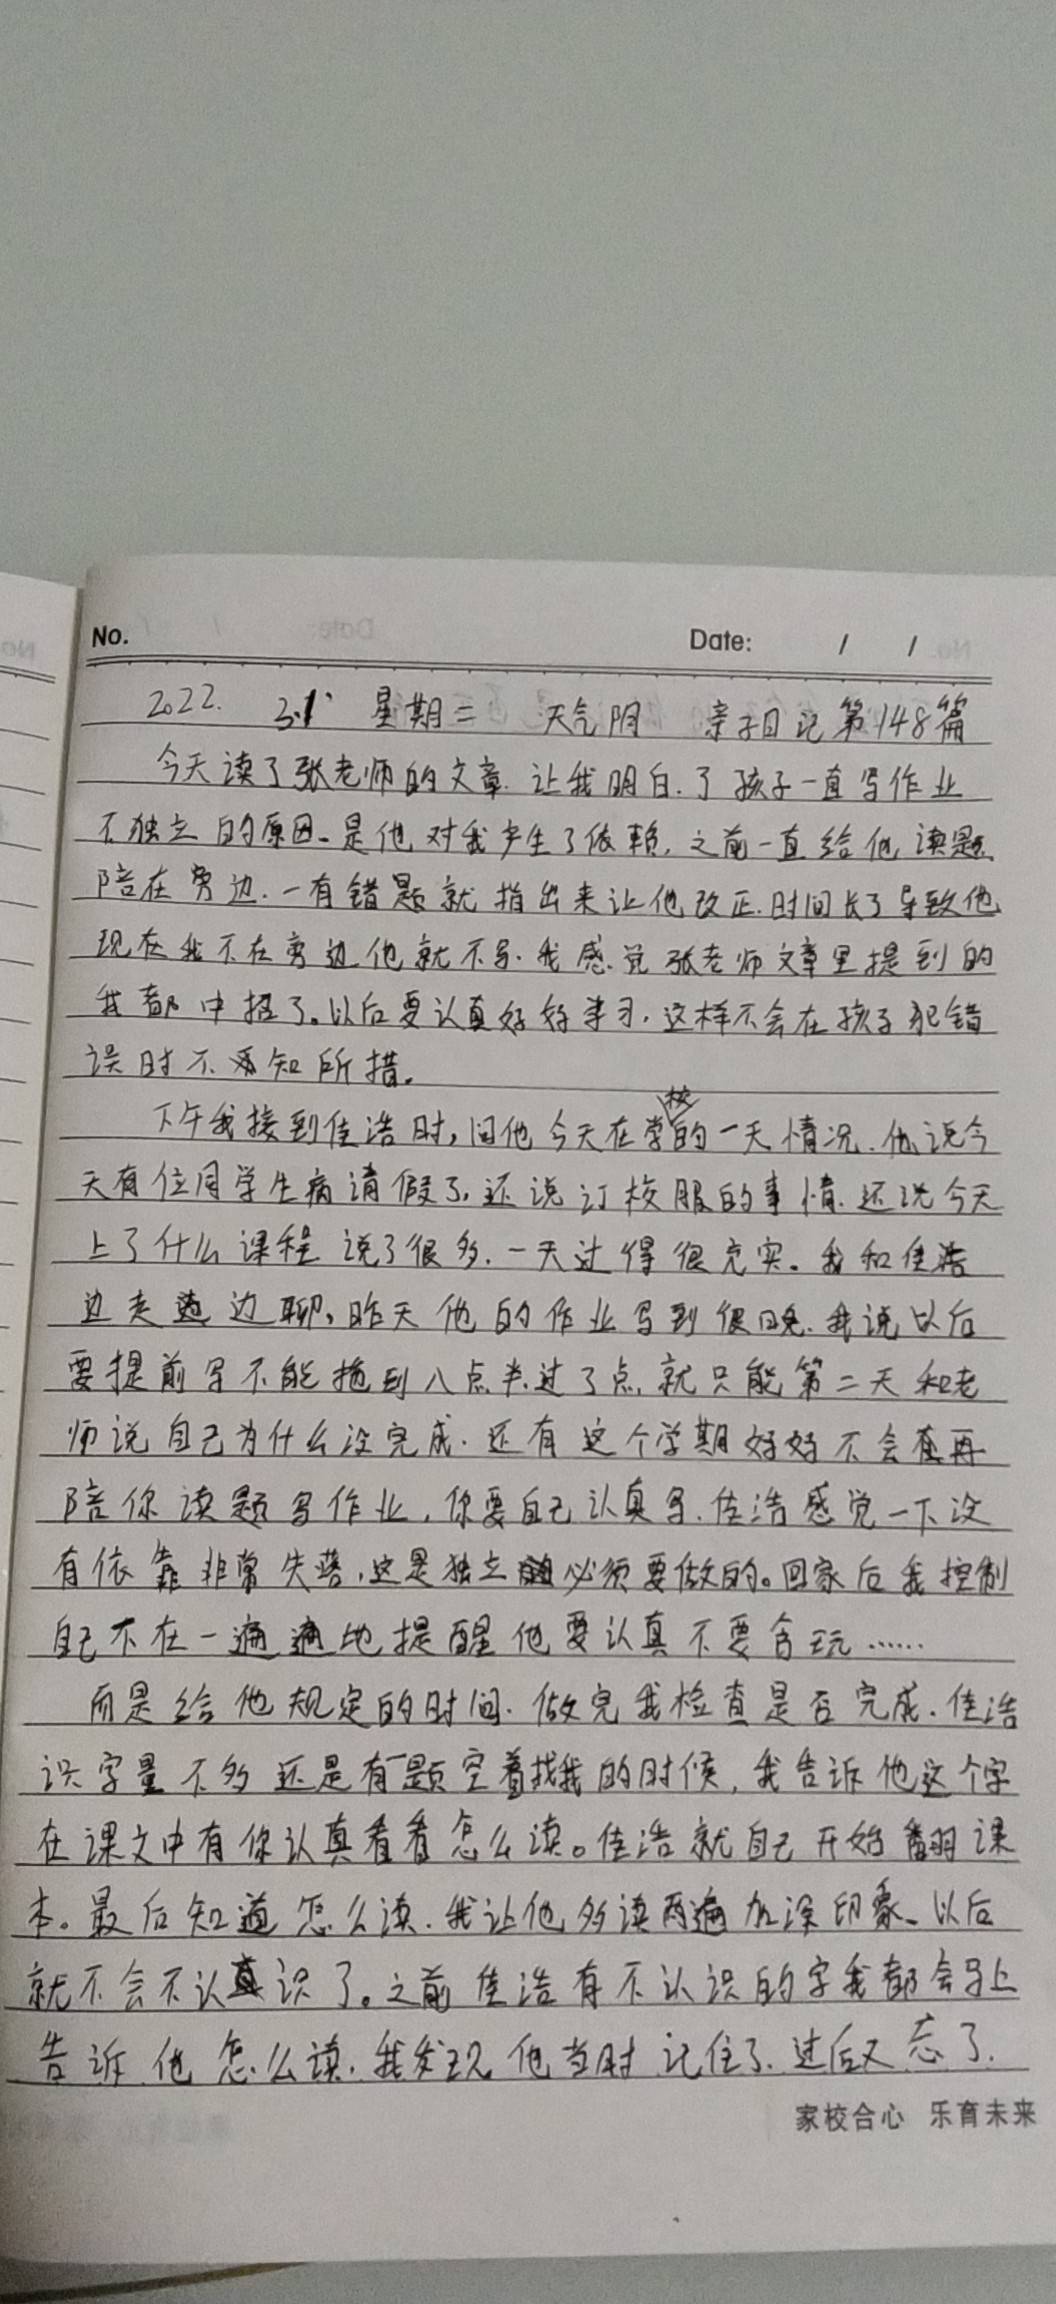 No. Date: / /
2022. 3.1 星期二 天气阴 亲子日记第148篇
今天读了张老师的文章.让我明白.了孩子一直写作业
不独立的原因.是他对我产生了依赖,之前一直给他读题
陪在旁边.一有错题就指出来让他改正.时间长了导致他
现在我不在旁边他就不写.我感觉张老师文章里提到的
我都中招了。以后要认真好好学习.这样不会在孩子犯错
误时不知所措。
下午我接到佳浩时,问他今天在学校的一天情况.他说今
天有位同学生病请假了,还说订校服的事情.还说今天
上了什么课程说了很多.一天过得很充实。我和佳浩
边走边聊,昨天他的作业写到很晚.我说以后
要提前写不能拖到八点半.过了点.就只能第二天和老
师说自己为什么没完成.还有这个学期妈妈不会再
陪你读题写作业,你要自己认真写.佳浩感觉一下没
有依靠非常失落,这是独立必须要做的。回家后我控制
自己不在一遍遍地提醒他要认真不要贪玩……
而是给他规定的时间.做完我检查是否完成.佳浩
识字量不多还是有题空着找我的时候,我告诉他这个字
在课文中有你认真看看怎么读。佳浩就自己开始翻课
本。最后知道怎么读.我让他多读两遍加深印象.以后
就不会不认识了。之前佳浩有不认识的字我都会马上
告诉他怎么读.我发现他当时记住了.过后又忘了.
家校合心 乐育未来